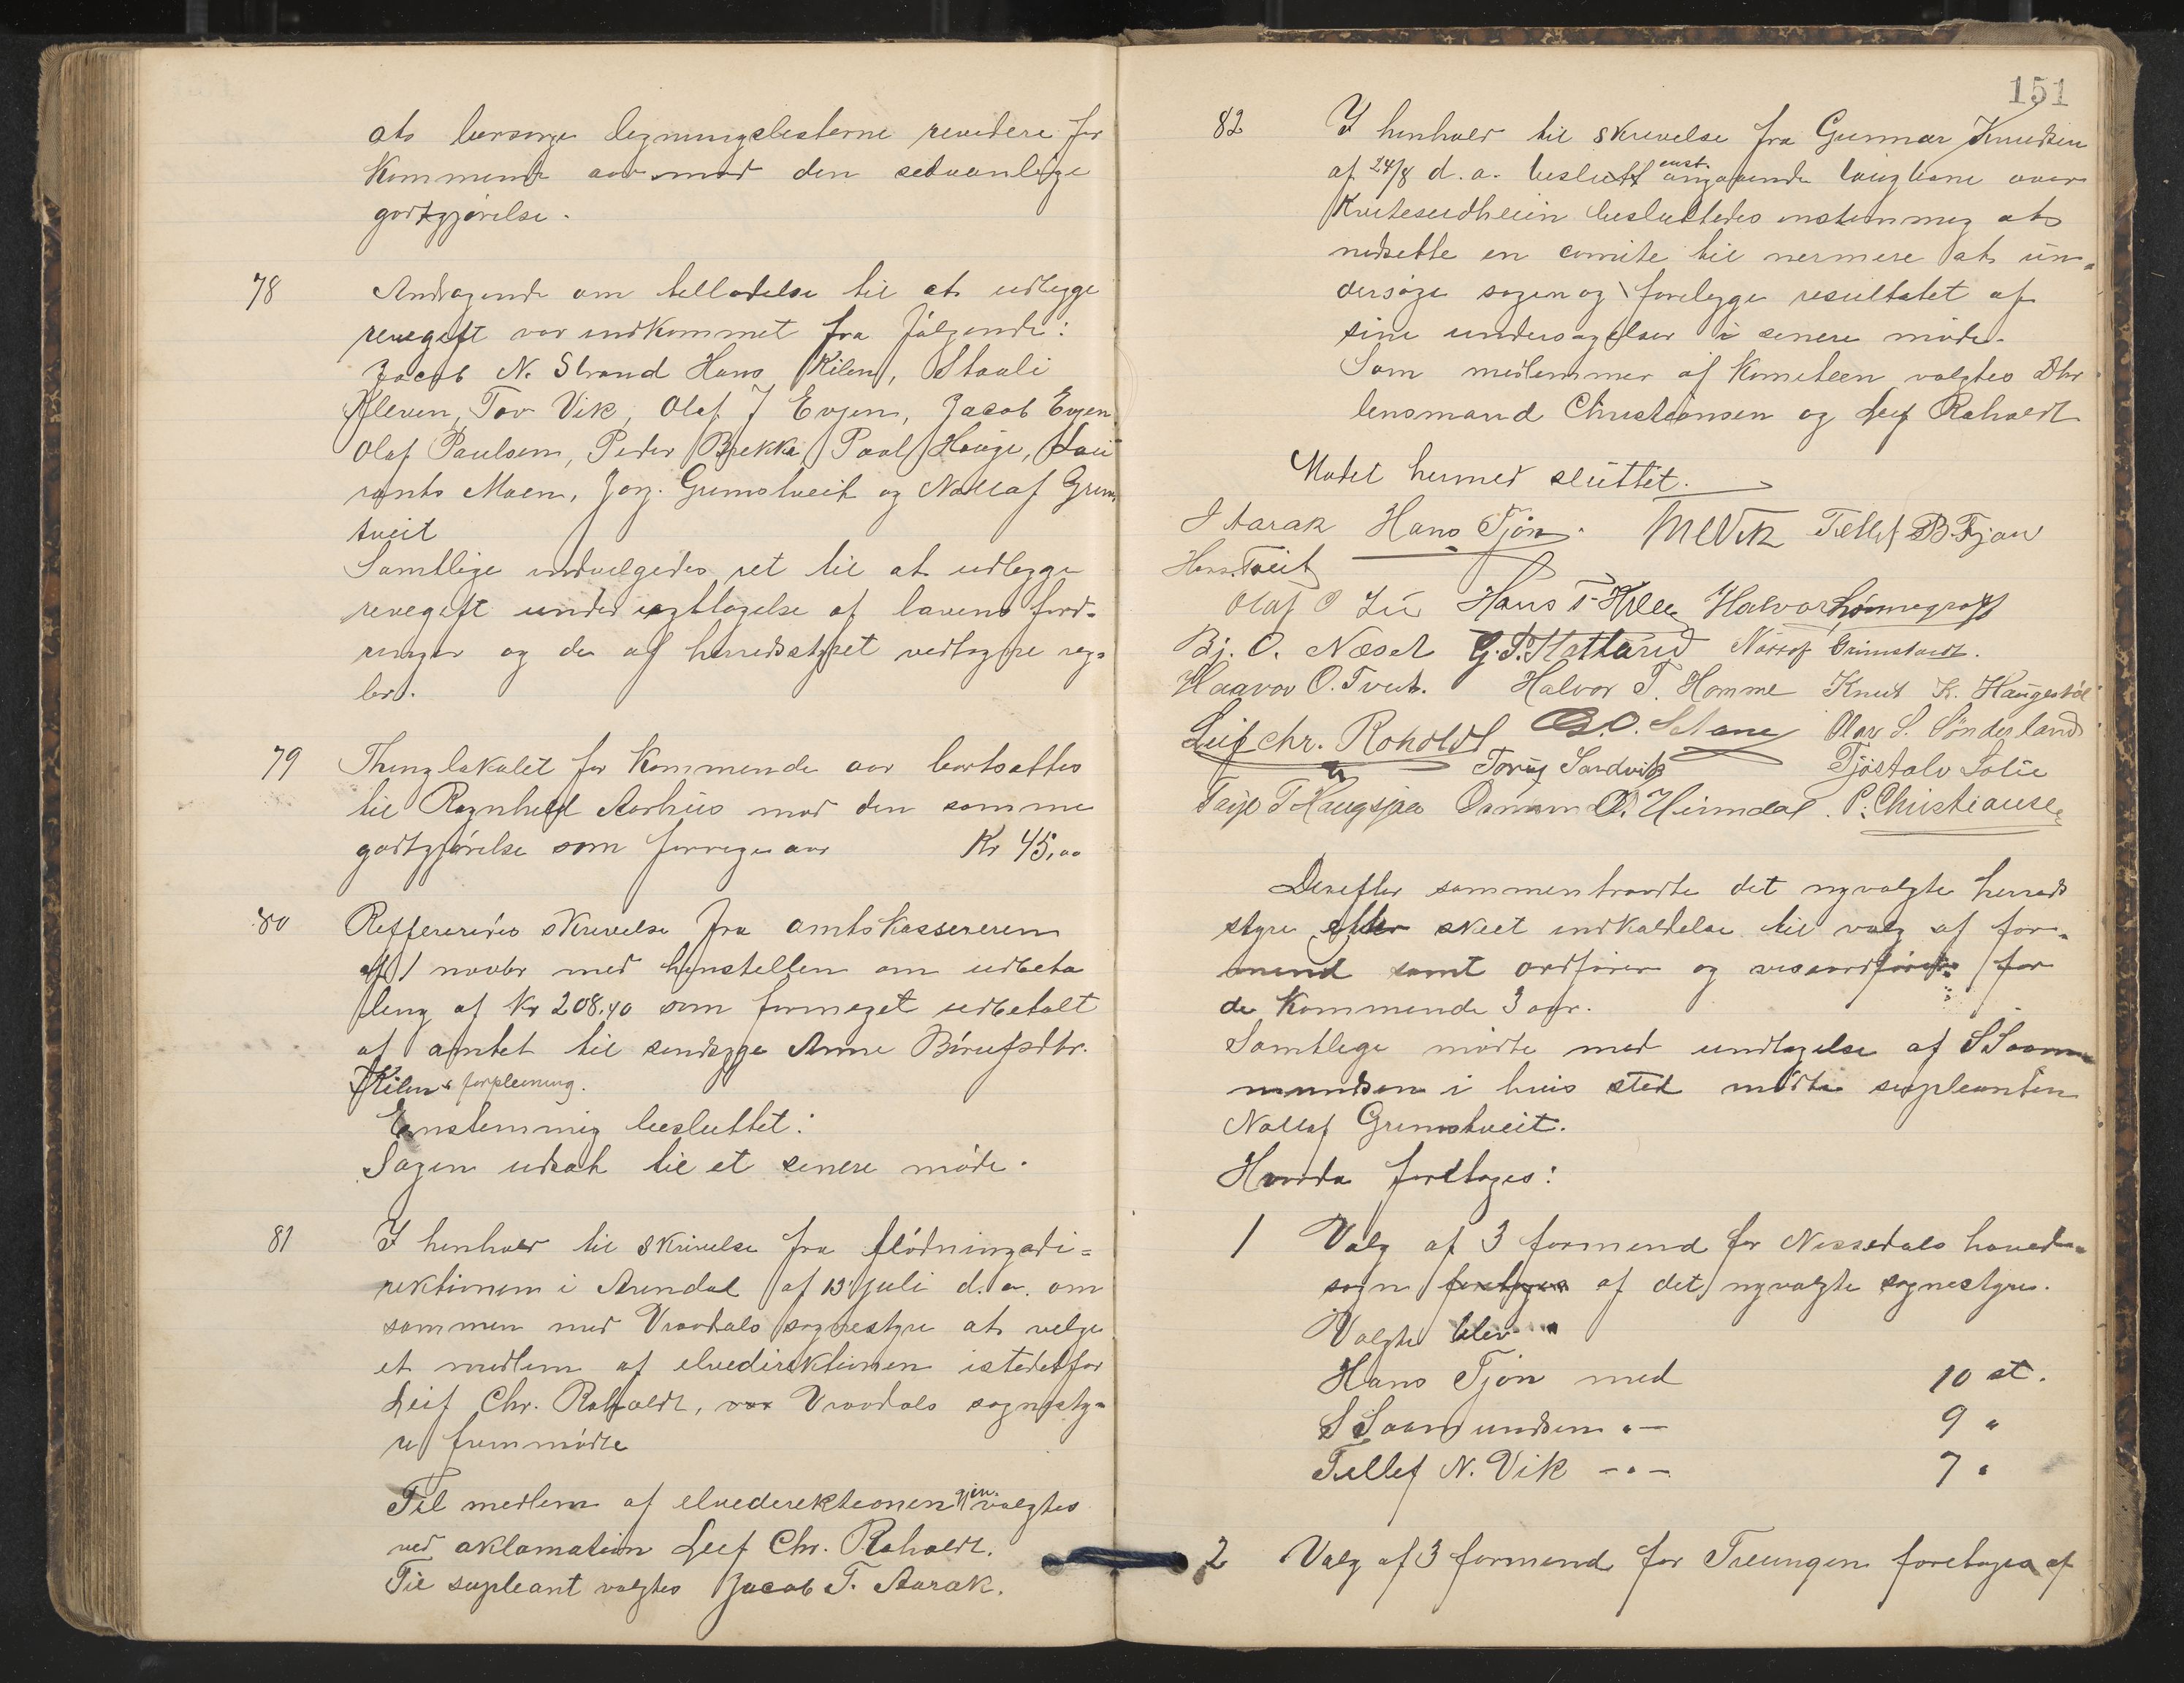 at besørge legningslisterne revidere for
kommende aar mod den sedvanlige
godtgjørelse.
78 Andragende om telladelse til at udlegge
revegift var indkommet fra følgende:
Jacob N. Strand Hans Kilen, Staali
Kleven, Tov Vik, Olaf J Evjen, Jacob Evjen
Olaf Paulsen, Peder Brekka, Paal Hauge, Lau
rants Moen, Jørg. Grimstveit og Nallaf Grim
tveit
Samtlige indvelgedes ret til at udlegge
revegift under iagttagelse af lavens ford-
ringer og de af herredsstyret vedtagne reg-
ler.
79 Thinglokalet for kommende aar bortsattes
til Ragnhild Aarhus mod den samme
godtgjørelse som forrige aar Kr 45,00
80 Reffereredes skrivelse fra amtskassereren
af 1 novbr med henstellen om udbeta
ling af Kr 208.40 som formeget udbetalt
af amtet til sindsyge Anne Bjørulfsdtr.
Kilens forpleining.
Enstemmig besluttet:
Sagen udsat til et senere møde.
81 I henhold til skrivelse fra flødningsdi=
rektionen i Arendal af 13 juli d.a. om
sammen med Vraadals sognestyre at velge
et medlem af elvedirektionen istedetfor
Leif Chr. Roholdt, var Vraadals sognesty=
re fremmødte
Til medlem af elvederektionen gjen valgtes
ved aklamation Leif Chr. Roholdt.
Til supleant valgtes Jacob T. Aarak.
151
82 I henhold til skrivelse fra Gunnar Knudsen
af 24/8 d.a. angaaende veigbane over
Kviteseidheien besluttedes enstemmig at
nedsette en comite til nermere at un=
dersøge sagen og forelegge resultatet af
sine undersøgelser i senere møde.
Som medlemmer af Komiteen valgtes Dhr
lensmand Christiansen og Leif Roholdt
Mødet hermed sluttet.
J Aarak Hans Tjøn. Tellef B. Tjøn
Hans Tveit
Olaf O Lie Hans T. Halvor Lønnegraff
Bj. O. Næset G. T. Hattarud Nallaf Grimstveit.
Haavor O. Tveit. Halvor T. Homme Knut K. Haugestøl
Leif Chr. Roholdt Olav S. Sønderland
Torjus Sandvik Tjøstolv Solie
Tarje T Haugsjaa Osmun O. Heimdal. P. Christiansen
Derefter sammentraadte det nyvalgte herreds
styre efter skeet indkaldelse til valg af for=
mend samt ordfører og viceordfører for
de kommende 3 aar.
Samtlige mødte med undtagelse af S Saam
mundsen i hvis sted mødte supleanten
Nallaf Grimstveit.
Hvorda foretoges:
1 Valg af 3 formend for Nissedals hoved=
sogn foretoges af det nyvalgte sognestyre.
Valgte blev
Hans Tjøn med 10 st.
S Saamundsen "— 9 "
Tellef N. Vik —"— 7 "
2 Valg af 3 formend for Treungen foretoges af